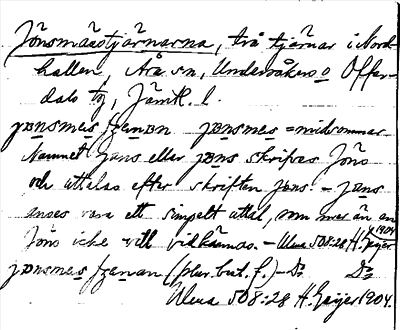 Jönsmässtjärnarna, två tjärnar i Nord-
hallen, Åre sn, Undersåkers o Offer-
dals tg, Jämtl. l.
jɒnsmɒs = midsommar
Namnet jɒns eller jɒns skrifves Jöns
och uttalas efter skriften jöns. – jɒns
anses vara ett simpelt uttal, som mer än en
Jöns icke vill vidkännas. – Ulma 508:28 H. Geijer 1904
(plur. best. f.) – Do Do
Ulma 508:28 H. Geijer 1904.